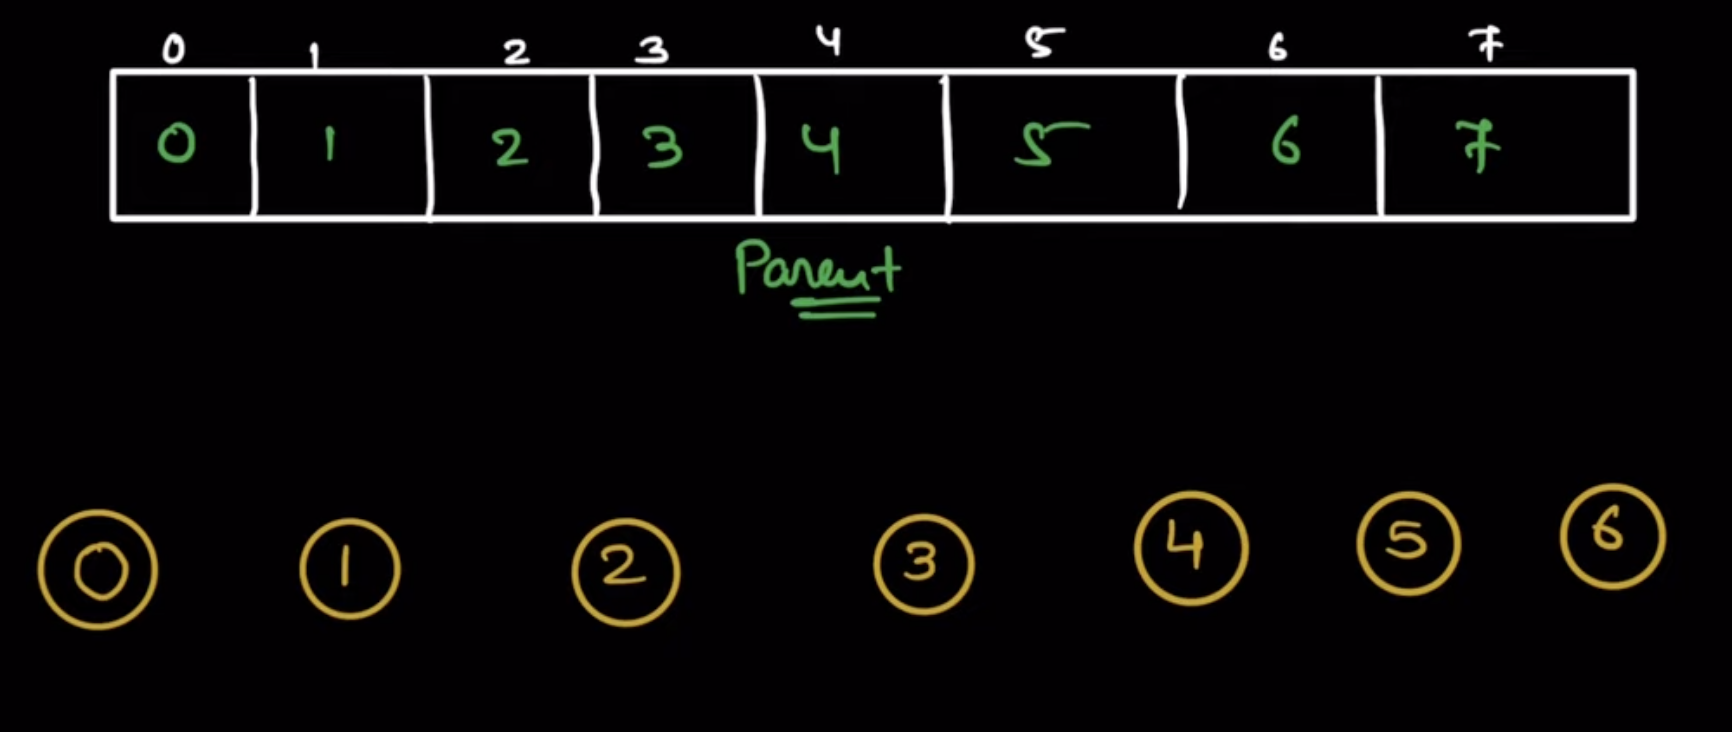 0 1 2 3 4 5 6 7
0 1 2 3 4 5 6 7
Parent
0 1 2 3 4 5 6